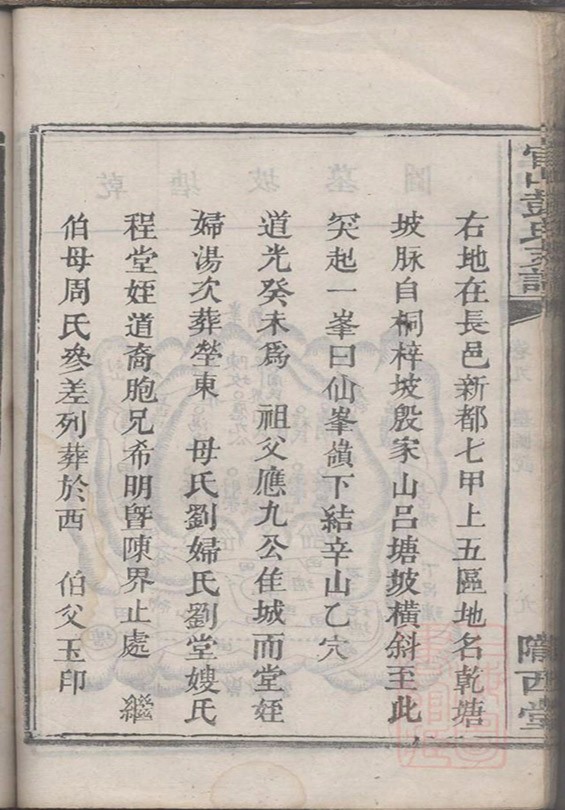 右地在長邑新都七甲上五區地名乾塘
坡脉自桐梓坡殷家山呂塘坡橫斜至此
突起一峯曰仙峯嶺下結辛山乙穴
道光癸未為 祖父應九公佳城而堂姪
婦湯次葬塋東 母氏劉婦氏劉堂嫂氏
程堂姪道裔胞兄希明暨陳界止處 繼
伯母周氏叅差列葬於西 伯父玉印
彭氏
隴西堂
乾塘坡墓圖